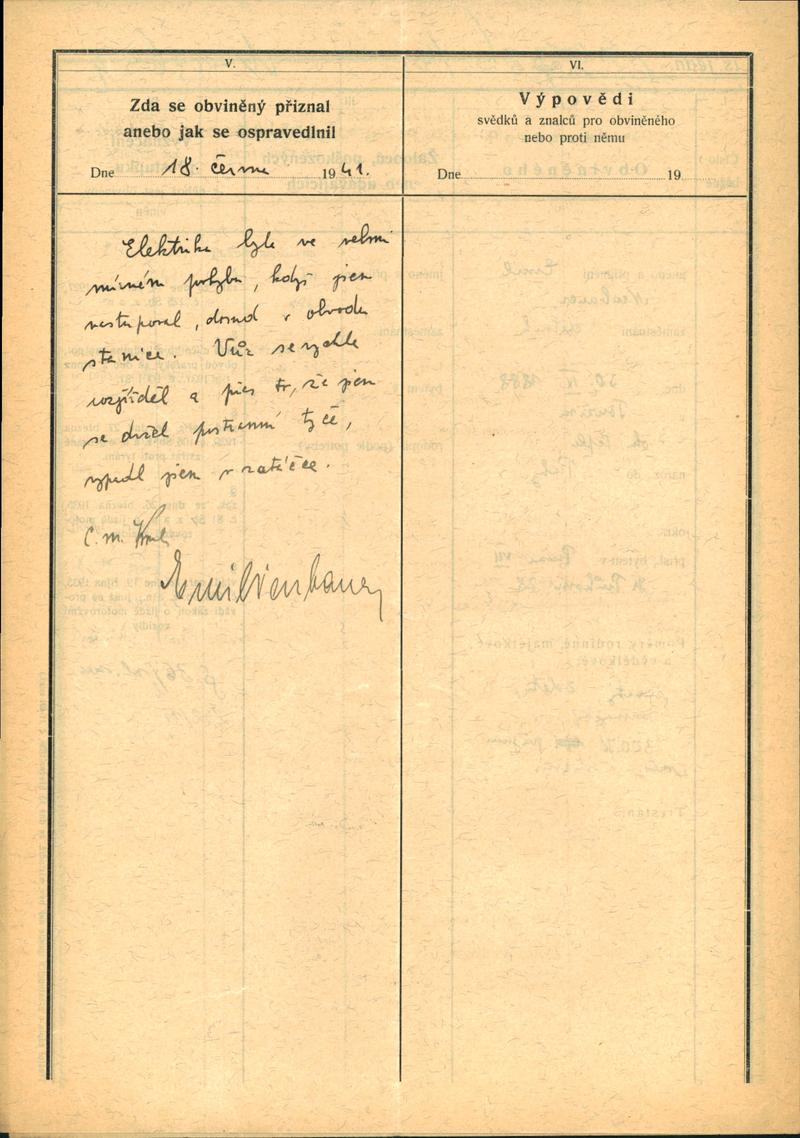 V.
Zda se obviněný přiznal
anebo jak se ospravedlnil
Dne 18. června 1941.
Elektrika byla ve velmi
mírném pohybu, když jsem
nastupoval, dosud v obvodu
stanice. Vůz se rychle
rozjížděl a přes to, že jsem
se držel postranní tyče,
vypadl jsem v zatáčce.
č. m.
Emil Neubauer
VI.
Výpovědi
svědků a znalců pro obviněného
nebo proti němu
Dne 19